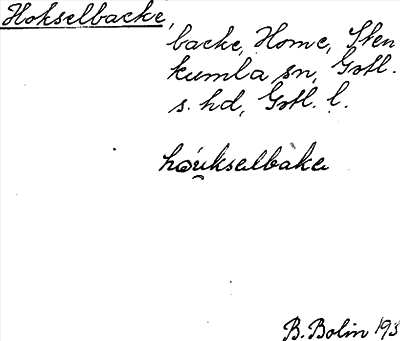 Hokselbacke,
backe, Home, Sten
kumla sn, Gotl.
s. hd, Gotl. l.
hóu̯kselbake
B. Bolin 193